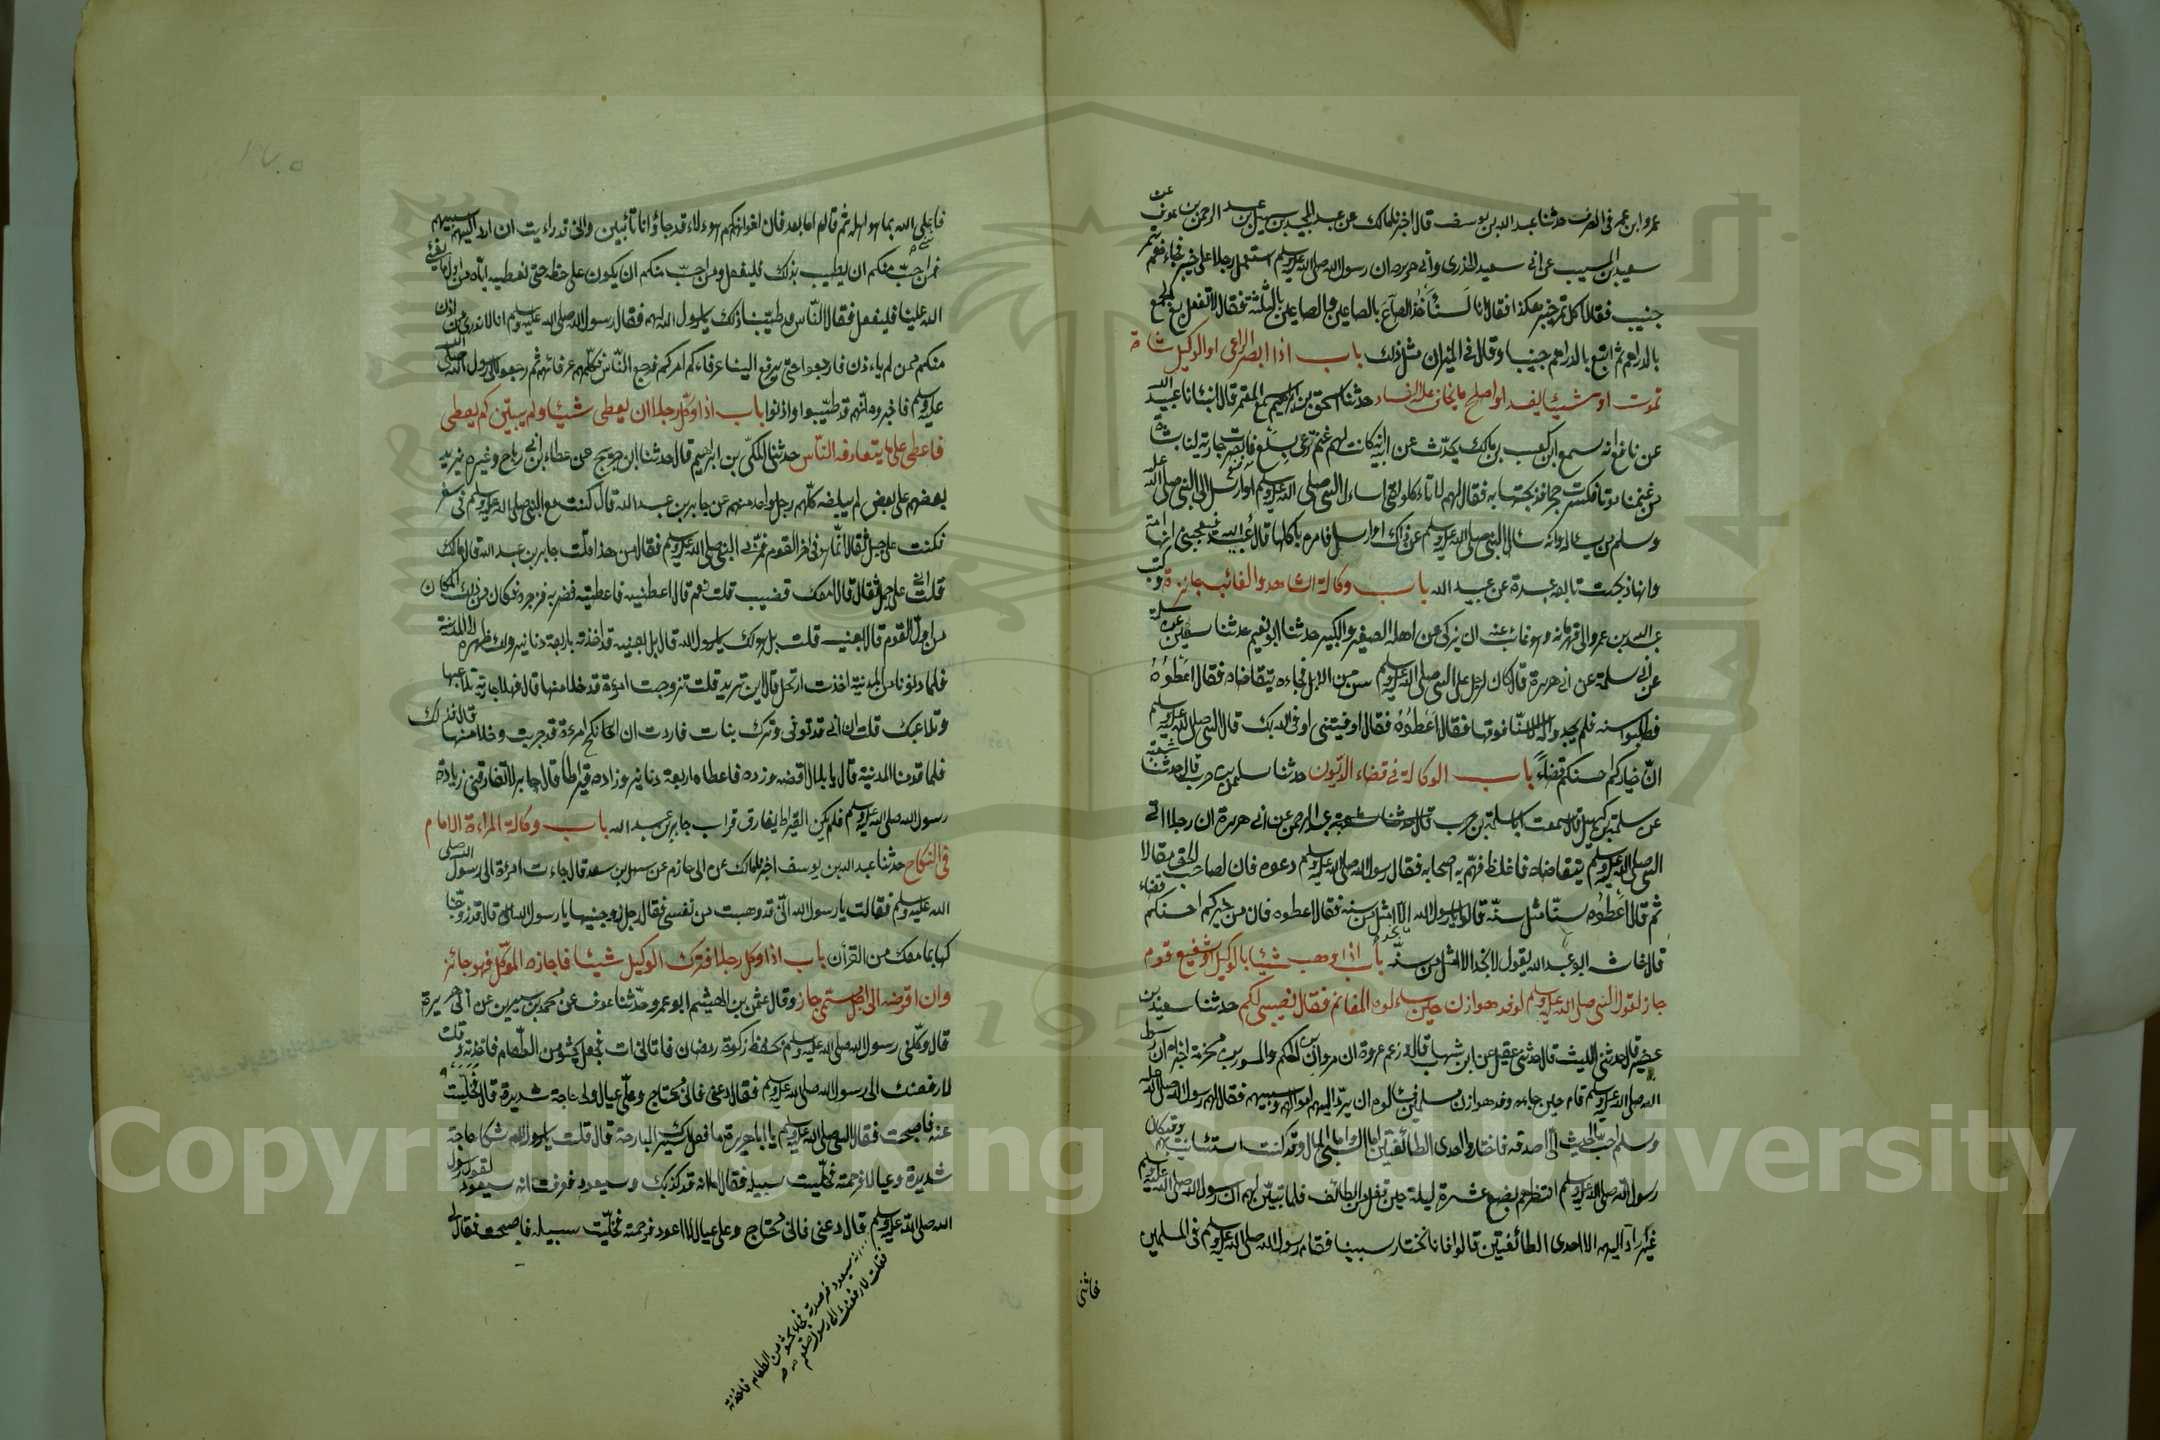 عمرو ابن عمر في الصرف حدثنا عبد الله بن يوسف قال اخبرنا مالك عن عبد المجيد بن سهيل بن عبد الرحمن بن عوف عن
سعيد بن المسيب عن ابي سعيد الخدري وابي هريرة ان رسول الله صلى الله عليه وسلم استعمل رجلا على خيبر فجاءهم بتمر
جنيب فقال اكل تمر خيبر هكذا فقال انا لنأخذ الصاع بالصاعين والصاعين بالثلثة فقال لا تفعل بع الجمع
بالدراهم ثم ابتع بالدراهم جنيبا وقال في الميزان مثل ذلك باب اذا ابصر الراعي او الوكيل شاة
تموت او شيئا يفسد او اصلح ما يخاف عليه الفساد حدثنا اسحق بن ابراهيم سمع المعتمر قال انبئانا عبيد الله
عن نافع انه سمع ابن كعب بن مالك يحدث عن ابيه انه كانت لهم غنم ترعى بسلع فابصرت جارية لنا بشاة
من غنمنا موتا فكسرت حجرا فذبحتها به فقال لهم لا تاءكلوا حتى اساءل النبي صلى الله عليه وسلم او ارسل الى النبي صلى الله عليه
وسلم من يساله وانه سال النبي صلى الله عليه وسلم عن ذاك او ارسل فامره باكلها قال عبيد الله فيعجبني انها امة
وانها ذبحت تابعه عبدة عن عبيد الله باب وكالة الشاهد والغائب جائزة وكتب
عبد الله بن عمرو الى قهرمانه وهو غائب عنه ان يزكي عن اهله الصغير والكبير حدثنا ابو نعيم حدثنا سفين عن سلمة
عن ابي سلمة عن ابي هريرة قال كان لرجل على النبي صلى الله عليه وسلم سن من الابل فجاءه يتقاضاه فقال اعطوه
فطلبوا سنه فلم يجدوا له الا سنا فوقها فقال اعطوه فقال اوفيتني اوفى الله بك قال النبي صلى الله عليه وسلم
ان خياركم احسنكم قضاء باب الوكالة في قضاء الديون حدثنا سليمن بن حرب قال حدثنا شعبة
عن سلمة بن كهيل قال سمعت ابا سلمة بن عبد الرحمن عن ابي هريرة ان رجلا اتى
النبي صلى الله عليه وسلم يتقاضاه فاغلظ فهم به اصحابه فقال رسول الله صلى الله عليه وسلم دعوه فان لصاحب الحق مقالا
ثم قال اعطوه سنا مثل سنه قالوا يا رسول الله الا امثل من سنه فقال اعطوه فان من خيركم احسنكم قضاء
قال ابو عبد الله يقول لا نجد الا امثل من سنه باب اذا وهب شيئا بالوكيل او شفيع قوم
جاز لقول النبي صلى الله عليه وسلم لوفد هوازن حين سالوه المغانم فقال نصيبي لكم حدثنا سعيد بن
عفير قال حدثني الليث قال حدثني عقيل عن ابن شهاب قال وزعم عروة ان مروان بن الحكم والمسور بن مخرمة اخبراه ان رسول
الله صلى الله عليه وسلم قام حين جاءه وفد هوازن مسلمين فسالوه ان يرد اليهم اموالهم وسبيهم فقال لهم رسول الله صلى الله عليه
وسلم احب الحديث الي اصدقه فاختاروا احدى الطائفتين اما المال واما السبي وقد كنت استئانيت بهم وقد كان
رسول الله صلى الله عليه وسلم انتظرهم بضع عشرة ليلة حين قفل من الطائف فلما تبين لهم ان رسول الله صلى الله عليه وسلم
غير راد اليهم الا احدى الطائفتين قالوا فانا نختار سبينا فقام رسول الله صلى الله عليه وسلم في المسلمين
فاثنى
فاثنى على الله بما هو اهله ثم قال اما بعد فان اخوانكم هوءلاء قد جاؤا انا تائبين واني قد راءيت ان ارد اليهم سبيهم
فمن احب منكم ان يطيب بذلك فليفعل ومن احب منكم ان يكون على حظه حتى نعطيه اياه من اول ما يفئ
الله علينا فليفعل فقال الناس قد طيبنا ذلك يا رسول الله لهم فقال رسول الله صلى الله عليه وسلم انا لا ندري من اذن
منكم ممن لم ياءذن فارجعوا حتى يرفع الينا عرفاءكم امركم فرجع الناس فكلمهم عرفائهم ثم رجعوا الى رسول الله صلى الله
عليه وسلم فاخبروه انهم قد طيبوا واذنوا باب اذا وكل رجلا ان يعطى شيئا ولم يبين كم يعطي
فاعطى على ما يتعارفه الناس حدثنا المكي بن ابراهيم قال حدثنا ابن جريج عن عطاء بن ابي رباح وغيره يزيد
بعضهم على بعض لم يبلغه كلهم رجل واحد منهم عن جابر بن عبد الله قال كنت مع النبي صلى الله عليه وسلم في سفر
فكنت على جمل ثفال انما هو في اخر القوم فمر بي النبي صلى الله عليه وسلم فقال من هذا قلت جابر بن عبد الله قال مالك
قلت اني على جمل ثفال قال امعك قضيب قلت نعم قال اعطنيه فاعطيته فضربه فزجره فكان من ذلك المكان
من اول القوم قال بعنيه قلت بل هو لك يا رسول الله قال بل بعنيه قد اخذته باربعة دنانير ولك ظهره الى المدينة
فلما دنونا من المدينة اخذت ارتحل قال اين تريد قلت تزوجت امرءة قد خلا منها قال فهلا جارية تلاعبها
وتلاعبك قلت ان ابي قد توفي وترك بنات فاردت ان انكح امرءة قد جربت وخلا منها قال فذلك
فلما قدمنا المدينة قال يا بلال اقضه وزده فاعطاه اربعة دنانير وزاده قيراطا قال جابر لا تفارقني زيادة
رسول الله صلى الله عليه وسلم فلم يكن القيراط يفارق قراب جابر بن عبد الله باب وكالة المراءة الامام
في النكاح حدثنا عبد الله بن يوسف اخبرنا مالك عن ابي حازم عن سهل بن سعد قال جاءت امرئة الى رسول الله صلى
الله عليه وسلم فقالت يا رسول الله اني قد وهبت من نفسي فقال رجل زوجنيها يا رسول الله قال قد زوجناكها
بما معك من القرأن باب اذا وكل رجلا فترك الوكيل شيئا فاجازه الموكل فهو جائز
وان اقرضه الى اجل مسمى جاز وقال عثمن بن الهيثم ابو عمرو حدثنا عوف عن محمد بن سيرين عن ابي هريرة
قال وكلني رسول الله صلى الله عليه وسلم بحفظ زكوة رمضان فاتاني ات فجعل يحثو من الطعام فاخذته وقلت
لارفعنك الى رسول الله صلى الله عليه وسلم فقال دعني فاني محتاج وعلي عيال ولي حاجة شديدة قال فخليت
عنه فاصبحت فقال النبي صلى الله عليه وسلم يا ابا هريرة ما فعل اسيرك البارحة قال قلت يا رسول الله شكا حاجة
شديدة وعيالا فرحمته فخليت سبيله فقال اما انه قد كذبك وسيعود فعرفت انه سيعود لقول رسول
الله صلى الله عليه وسلم قال دعني فاني محتاج وعلي عيال لا اعود فرحمته فخليت سبيله فاصبحت فقال لي
انه سيعود فرصدته فجاء يحثو من الطعام فاخذته
فقلت لارفعنك الى رسول الله صلعم
Copyright © King Saud University
1957